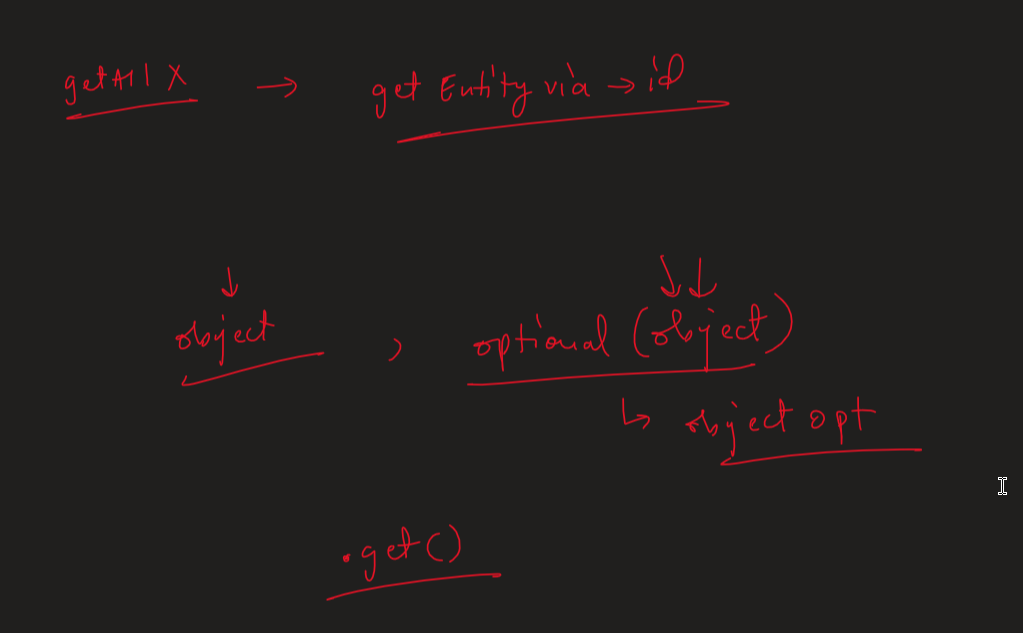 getAll X → get Entity via → id
↓ ↓↓
object , optional (object)
↳ object opt
.get()